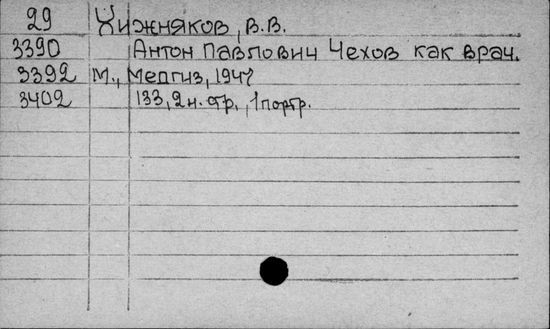 29 Хижняков, В.В.
3390 Антон Павлович Чехов как врач.
3392 М., Медгиз, 1947
3402 133, 2 н. стр., 1 портр.